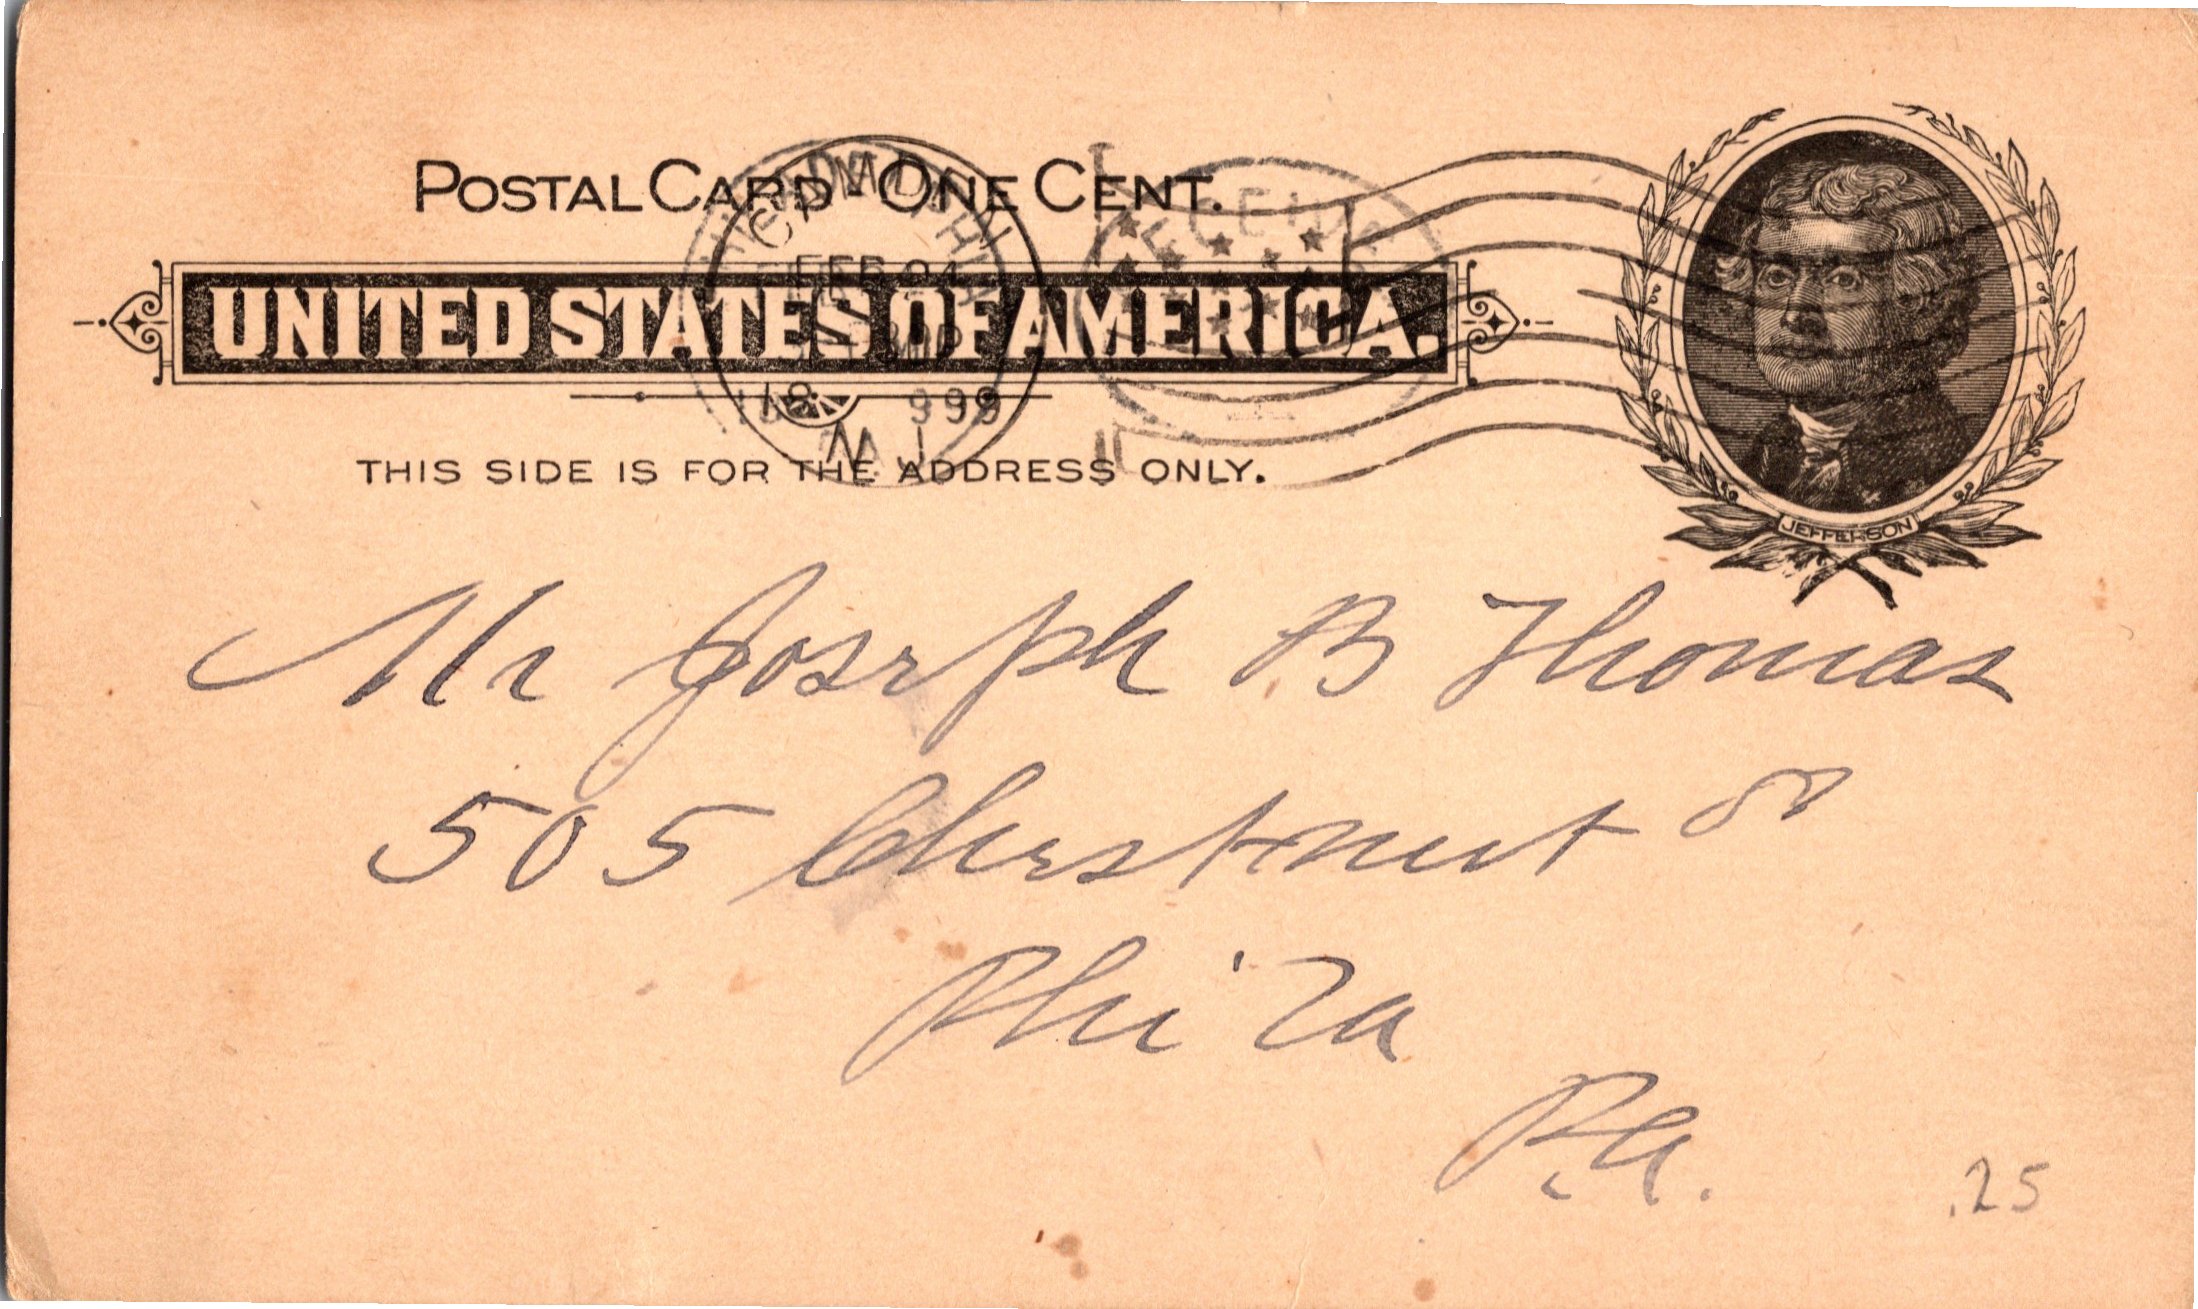 POSTAL CARD - ONE CENT.
UNITED STATES OF AMERICA.
THIS SIDE IS FOR THE ADDRESS ONLY.
CAMDEN
FEB 24
N.J.
RECEIVED
JEFFERSON
Mr Joseph B Thomas
505 Chestnut St
Phila
Pa.
.25